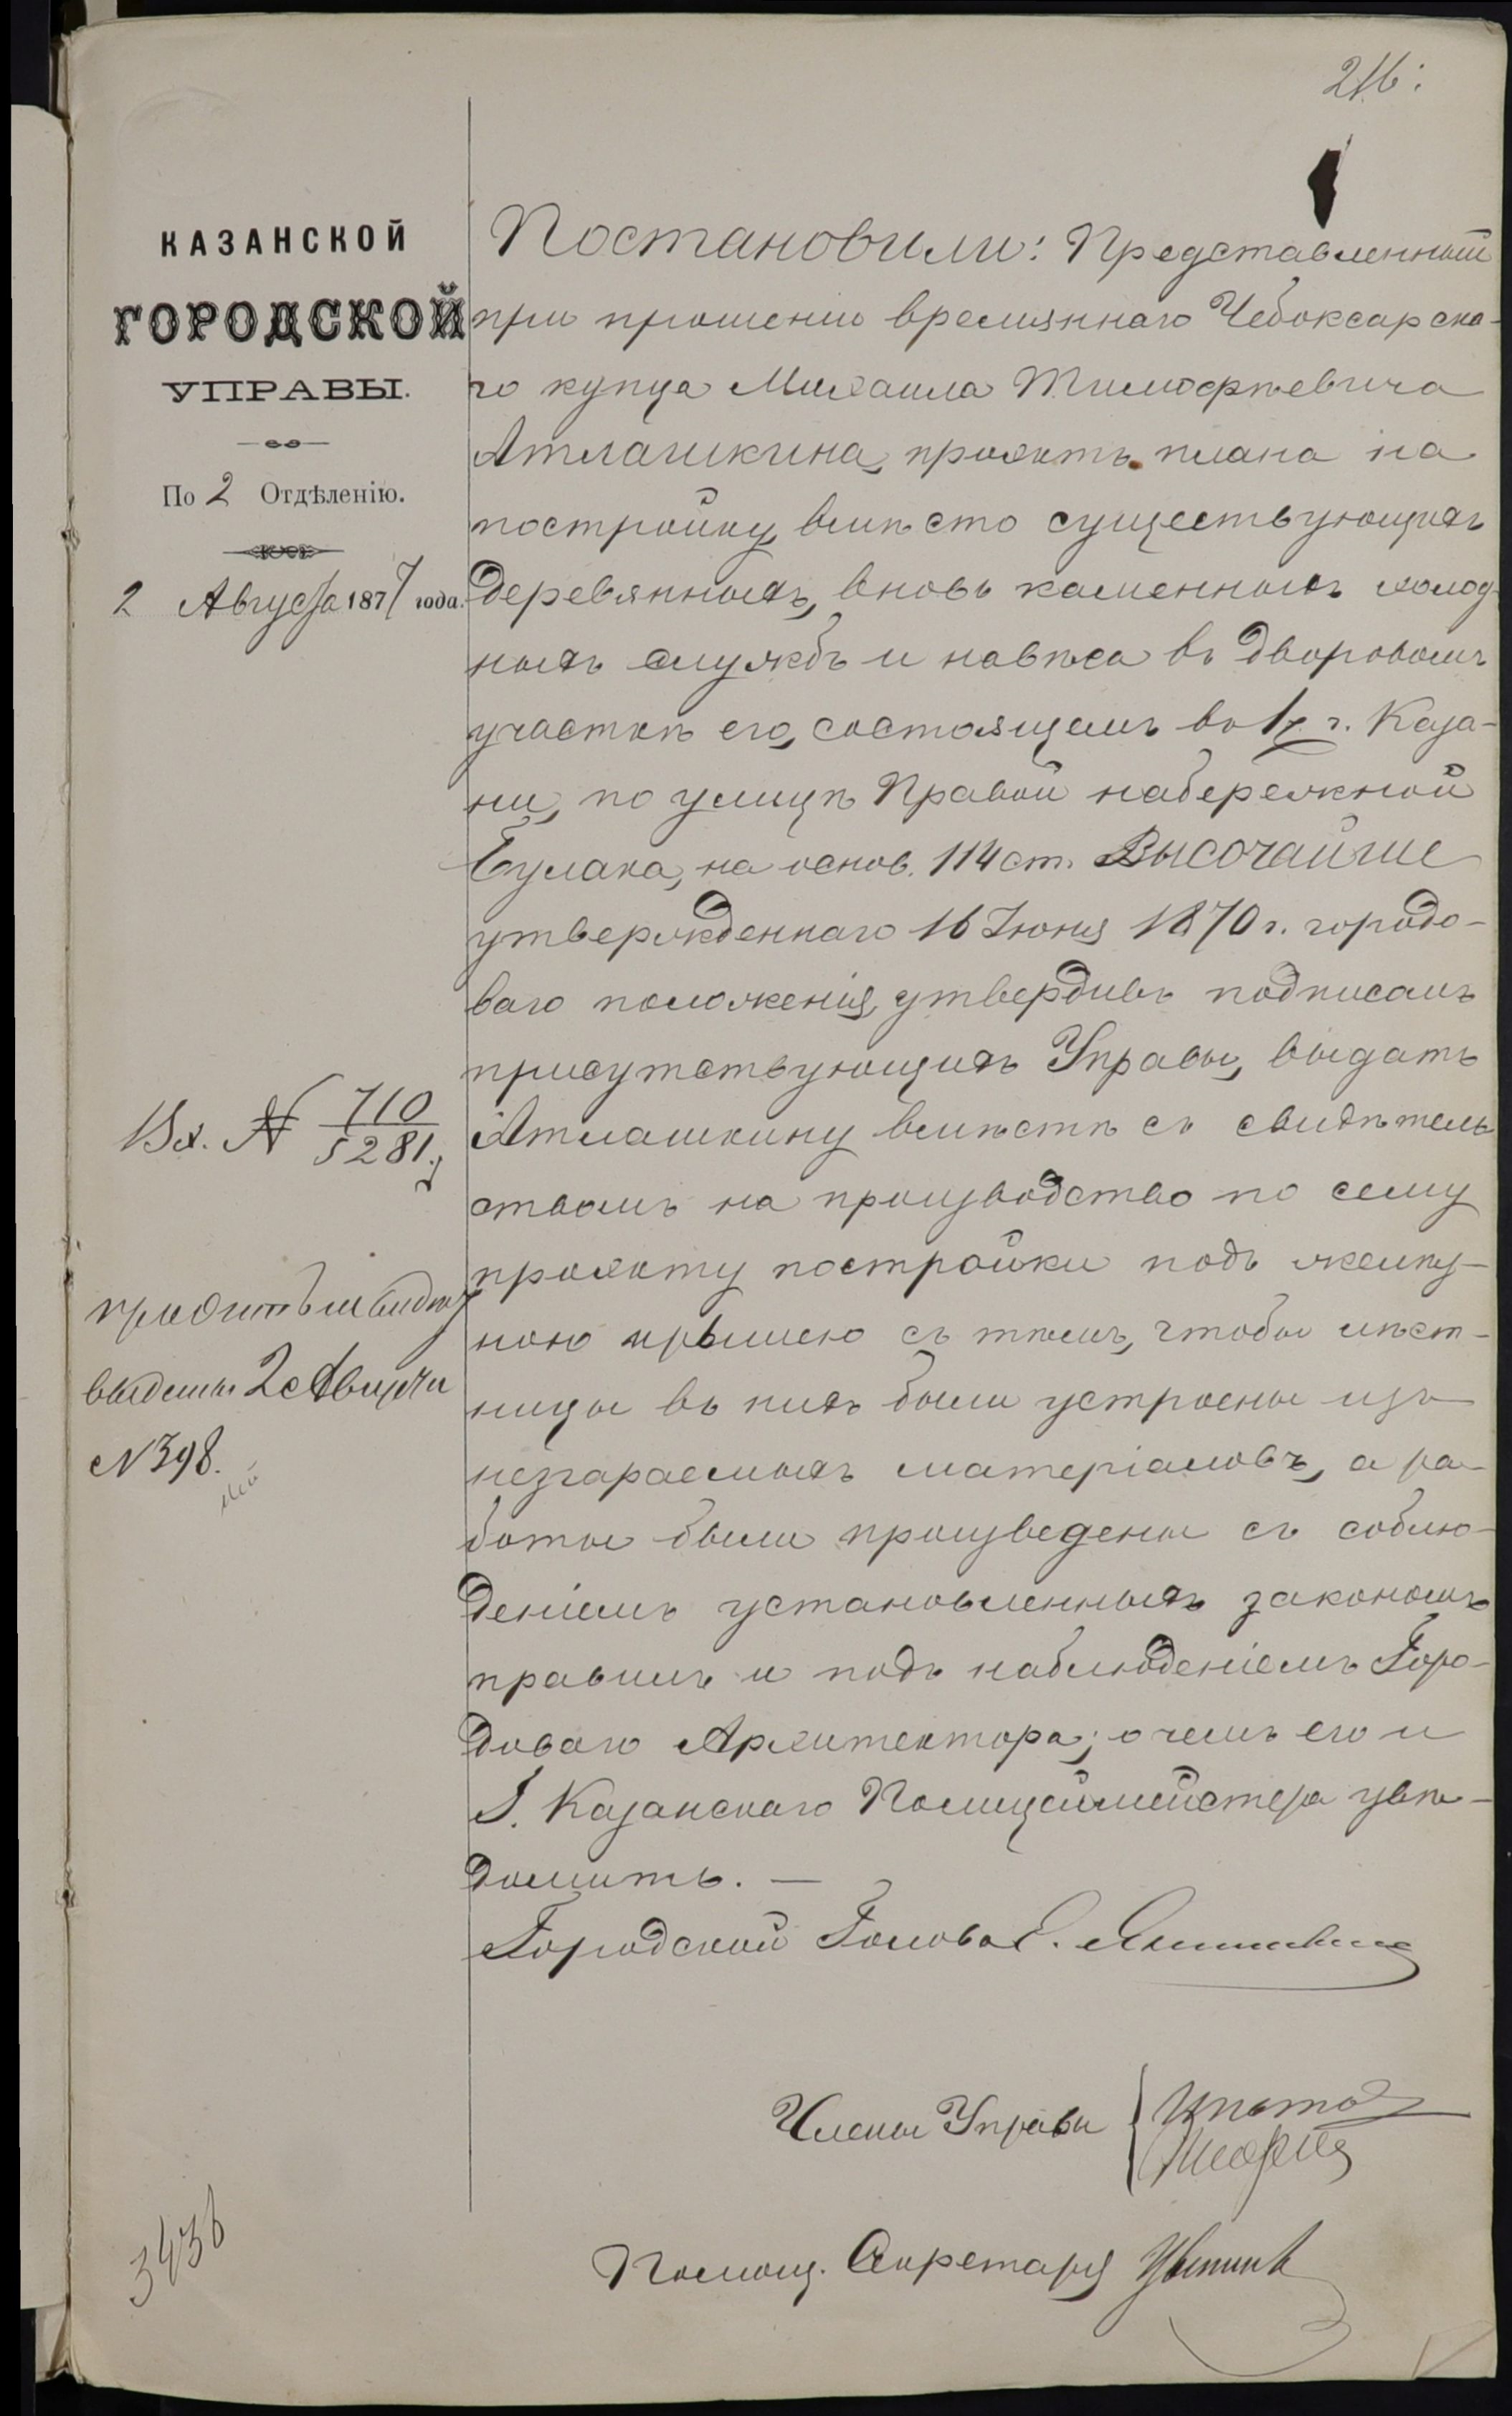 216.
КАЗАНСКОЙ
ГОРОДСКОЙ
УПРАВЫ.
По 2 Отдѣленію.
2 Августа 1877 года.
Постановили: Представленный
при прошеніи времяннаго Чебоксарска-
го купца Михаила Тимофѣевича
Атлашкина, проэктъ плана на
постройку, вмѣсто существующихъ
деревянныхъ, вновь каменныхъ холод-
ныхъ службъ и навѣса въ дворовомъ
участкѣ его, состоящемъ во 1 ч. г. Каза-
ни, по улицѣ Правой набережной
Булака, на основ. 114 ст. Высочайше
утвержденнаго 16 Іюня 1870 г. городо-
ваго положенія, утвердивъ подписомъ
присутствующихъ Управы, выдать
Атлашкину вмѣстѣ съ свидѣтель
ствомъ на производство по сему
проэкту постройки подъ желѣз-
ною крышею съ тѣмъ, чтобы лѣст-
ницы въ нихъ были устроены изъ
незгараемыхъ матеріаловъ, а ра-
боты были произведены съ соблю-
деніемъ установленныхъ закономъ
правилъ и подъ наблюденіемъ Горо-
доваго Архитектора; о чемъ его и
Г. Казанскаго Полицеймейстера увѣ-
домить. —
Городской Голова Е. Янишевскій
Члены Управы
Помощ. Секретаря
Вх. № 710
5281.
выданы 2 Августа
№ 398.
3436